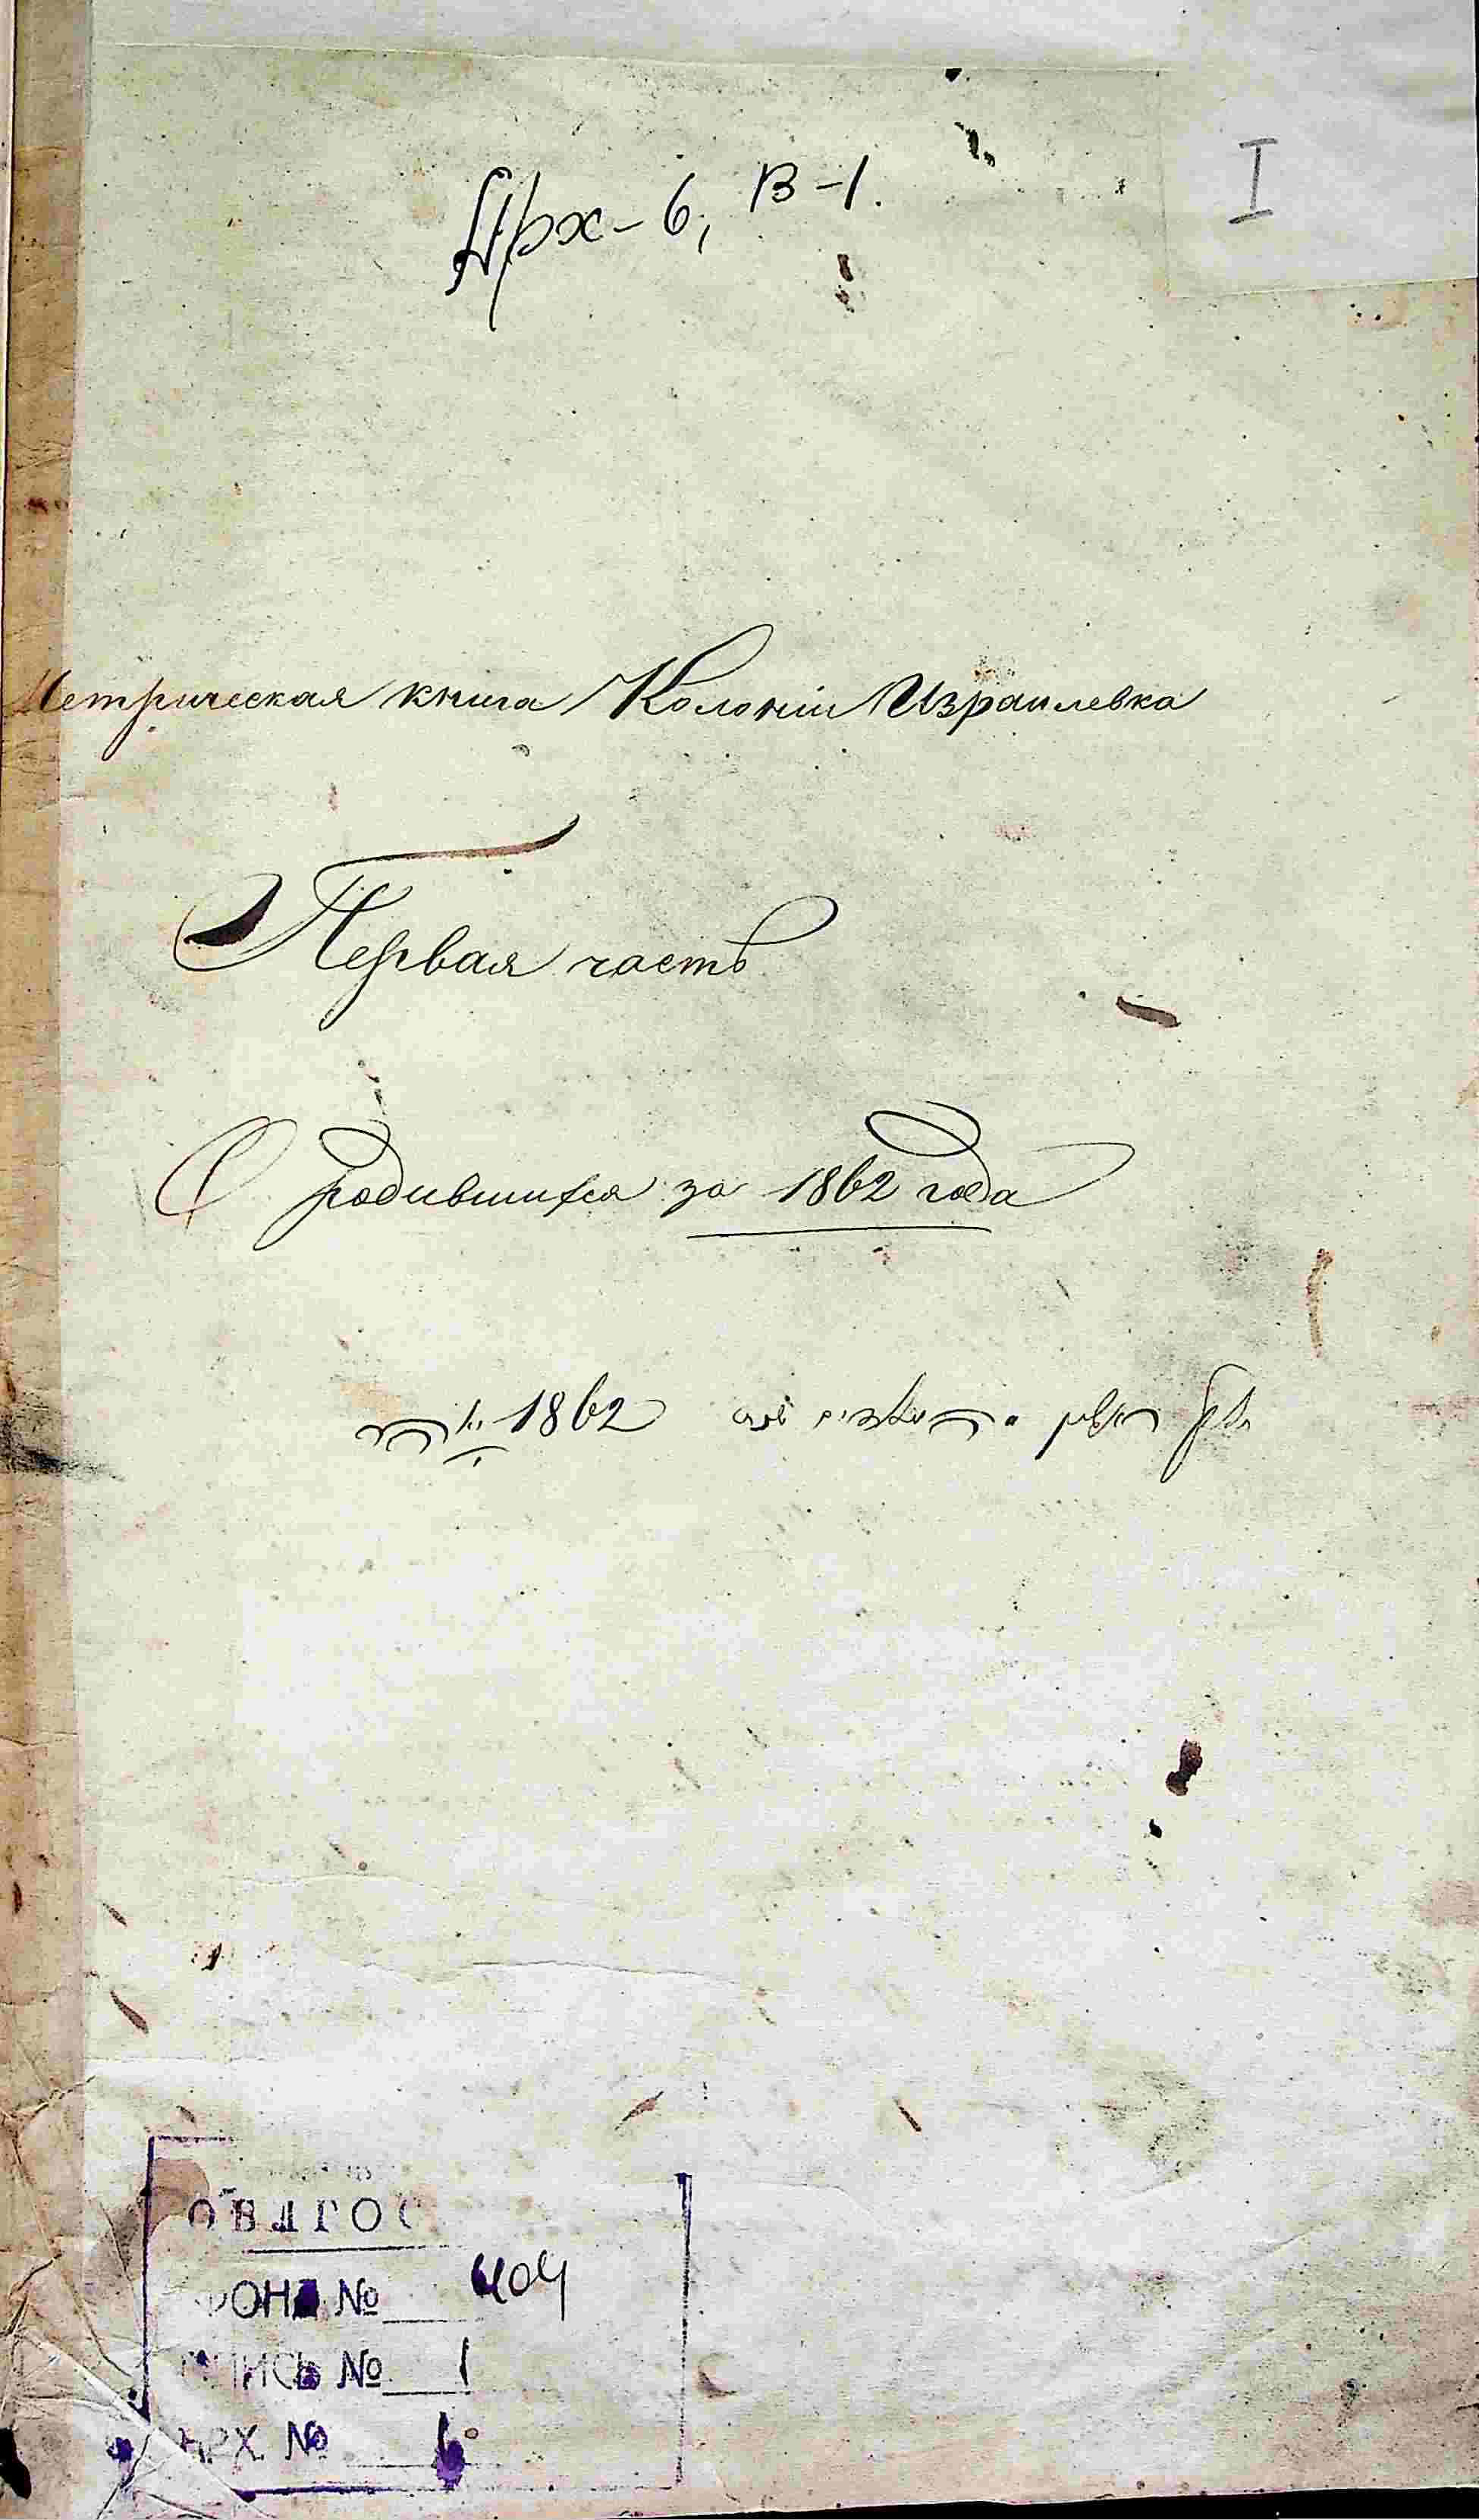 I
Арх-6, В-1.
Метрическая книга Колоніи Израилевка
Первая часть
О родившихся за 1862 года
חלק ראשון 1862
ФОНД № 404
ОПИСЬ № 1
АРХ. № 6